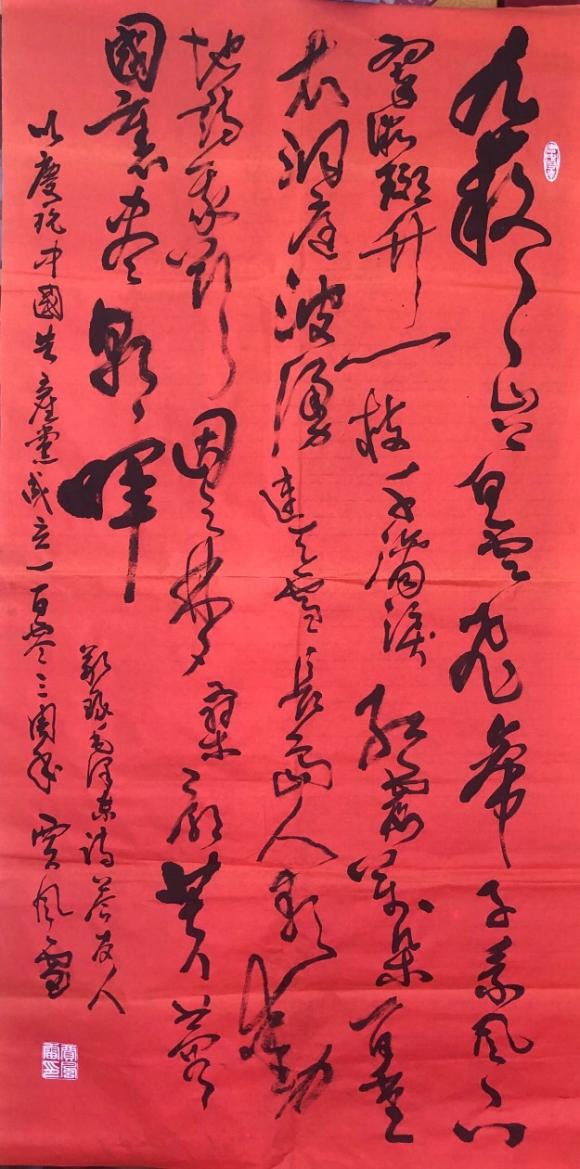 九嶷山上白雲飛帝子乘風下
翠微斑竹一枝千滴淚紅霞萬朵百重
衣洞庭波湧連天雪長島人歌動
地詩我欲因之夢寥廓芙蓉
國裏盡朝暉
毛澤東詩答友人
以慶祝中國共產黨成立一百零三周年 賈風雷